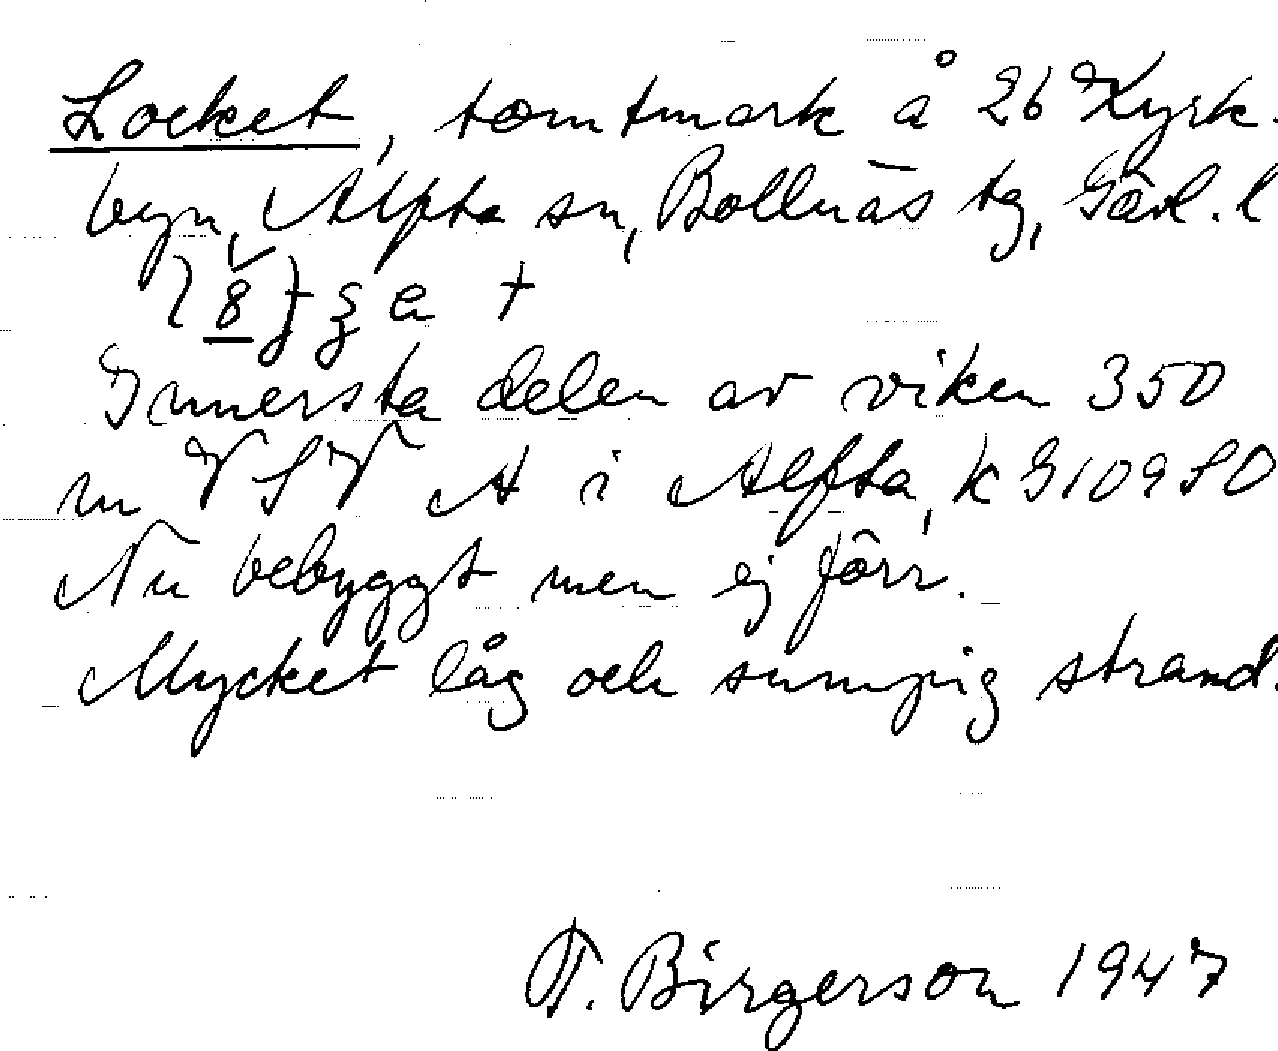 Locket, tomtmark å 26 Kyrk-
byn, Alfta sn, Bollnäs tg, Gävl. l
Innersta delen av viken 350
m VSV A i Alfta, k G 109 SO
Nu bebyggt men ej förr.
Mycket låg och sumpig strand.
T. Birgerson 1947